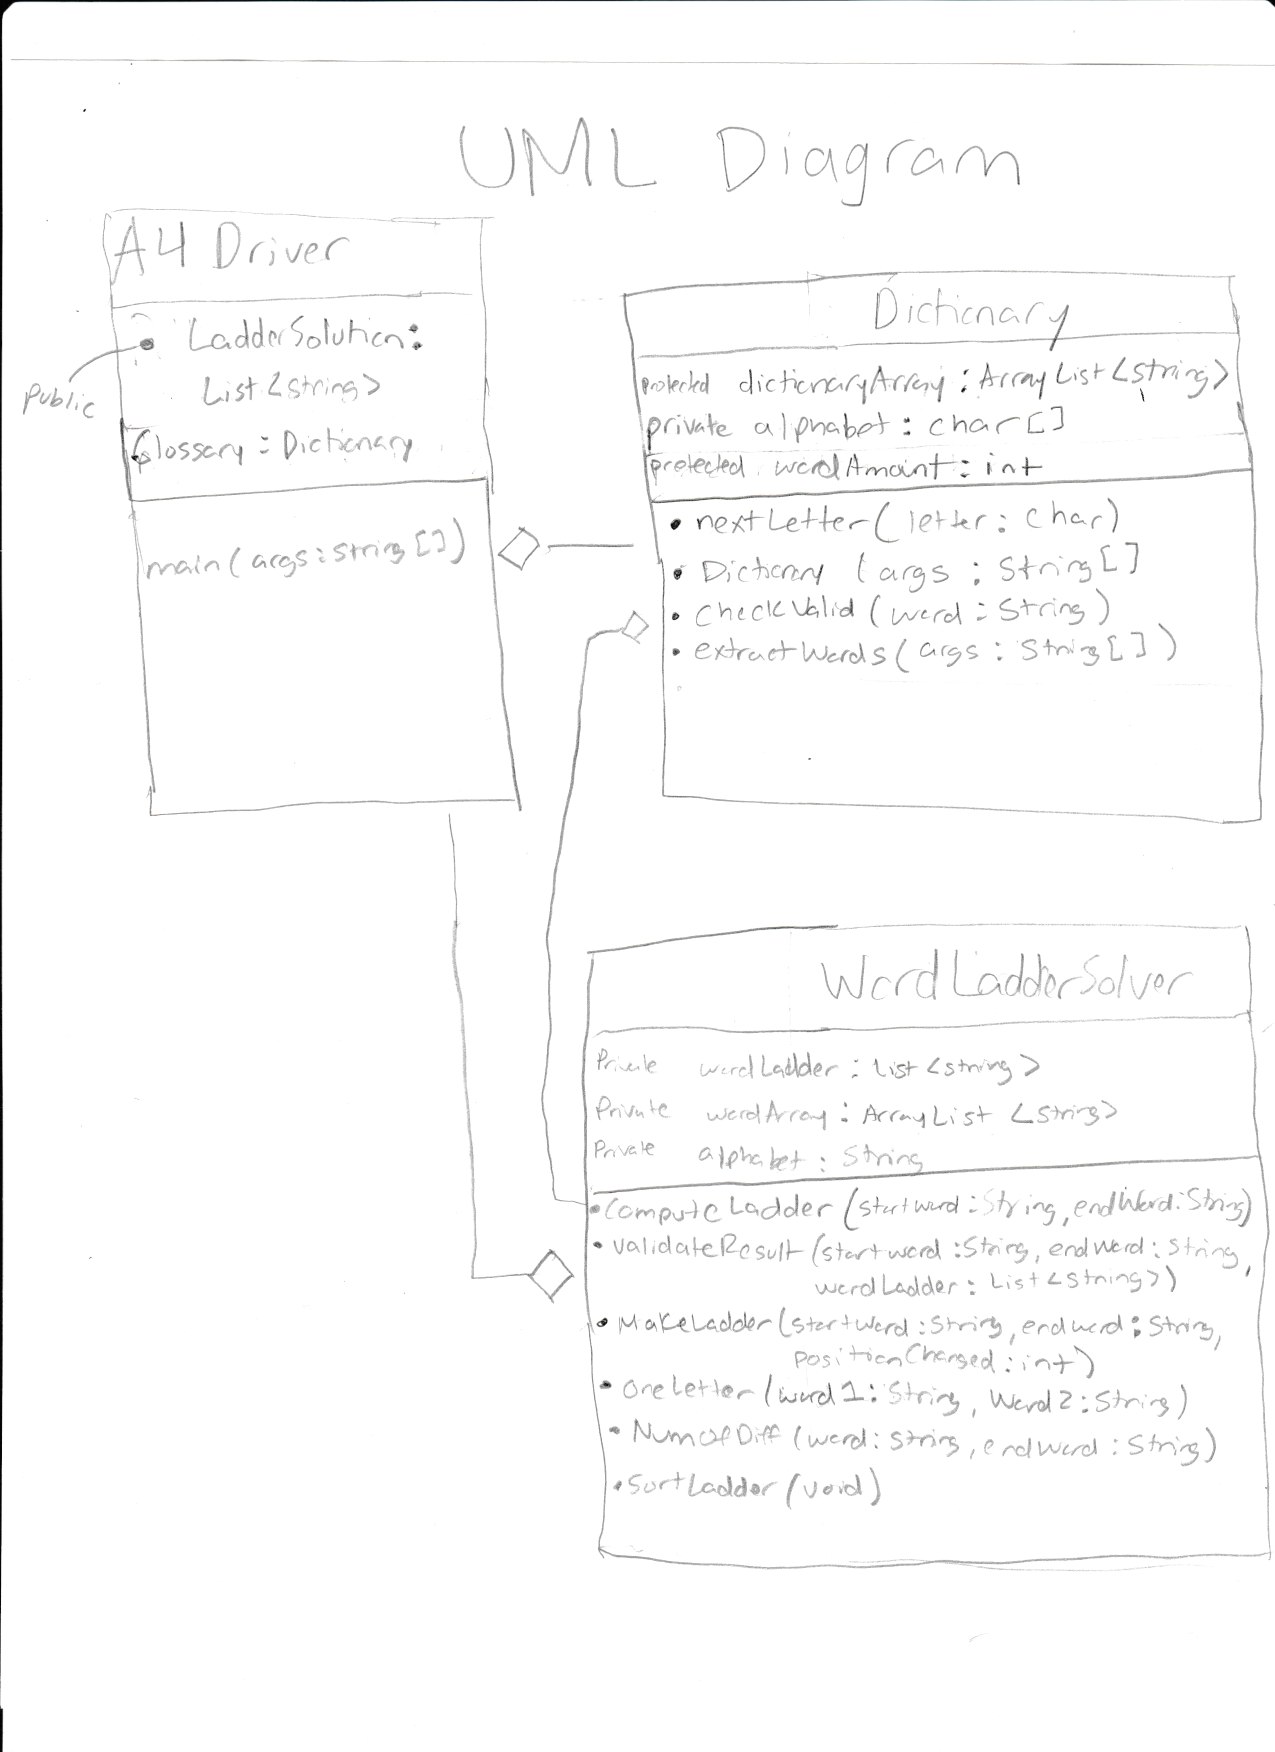 UML Diagram
A4 Driver
• LadderSolution:
List<String>
public
Glossary : Dictionary
main(args : String[])
Dictionary
protected dictionaryArray : ArrayList<String>
private alphabet : char[]
protected wordAmount : int
• nextLetter(letter : char)
• Dictionary (args : String[]
• checkValid(word : String)
• extractWords(args : String[])
WordLadderSolver
Private wordLadder : List<String>
Private wordArray : ArrayList <String>
Private alphabet : String
• ComputeLadder(startWord : String, endWord : String)
• validateResult(startword : String, endword : String,
wordLadder : List<String>)
• MakeLadder(startWord : String, endword : String,
positionChanged : int)
• oneLetter(word1 : String, Word2 : String)
• NumOfDiff(word : String, endword : String)
• SortLadder(void)